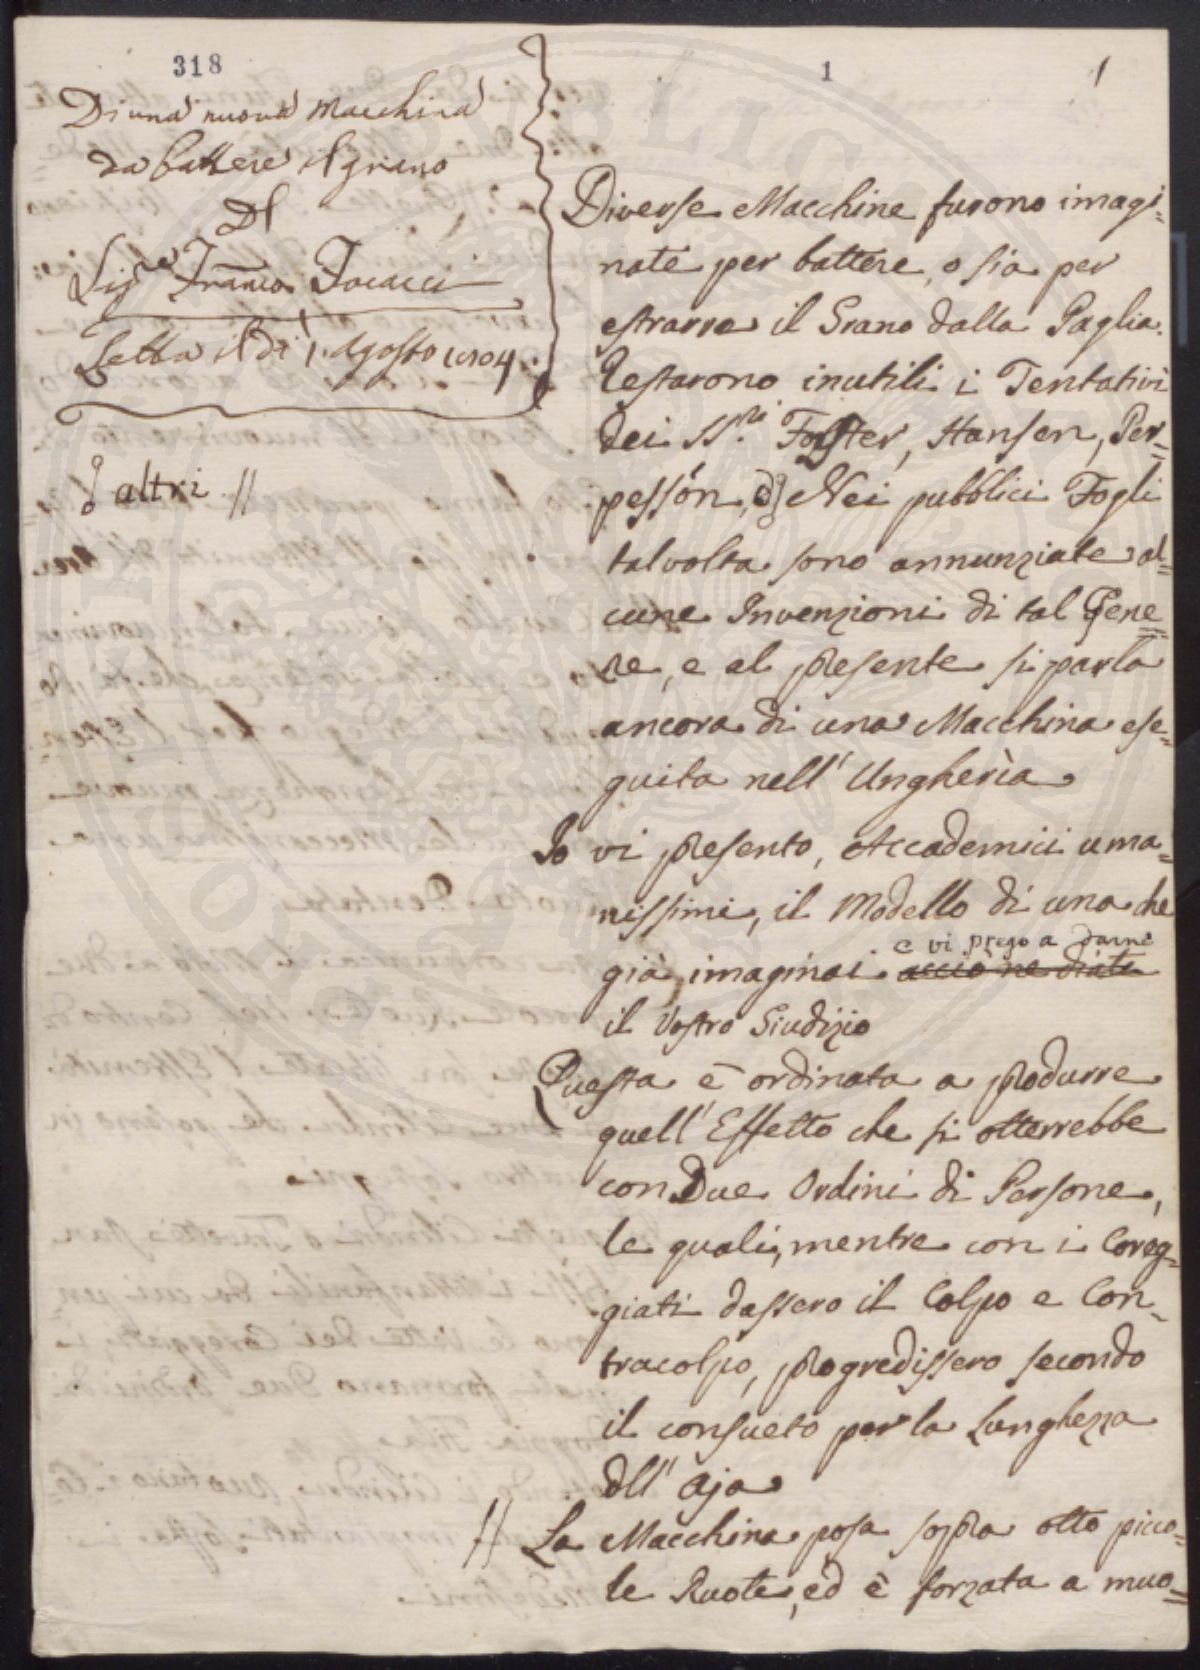 318
1
1
Di una nuova Macchina
da battere il grano
Del
Sig.re Franco Focacci
Letta il dì 1. Agosto 1804.
altri //
Diverse Macchine furono imagi=
nate per battere, o sia per
estrarre il Grano dalla Paglia.
Restarono inutili i Tentativi
dei SS.ri Foster, Hansen, Per=
pessón, Nei pubblici Fogli
talvolta sono annunziate al=
cune Invenzioni di tal Gene=
re, e al presente si parla
ancora di una Macchina ese=
guita nell' Ungherìa
Io vi presento, Accademici uma=
nissimi, il Modello di una che
e vi prego a darne
già imaginai acciò ne diate
il Vostro Giudizio
Questa è ordinata a produrre
quell' Effetto che si otterrebbe
con Due Ordini di Persone,
le quali, mentre con i Coreg=
giati dassero il Colpo e Con=
tracolpo, progredissero secondo
il consueto per la Lunghezza
dll' Aja
// La Macchina posa sopra otto picco=
le Ruote, ed è forzata a muo=